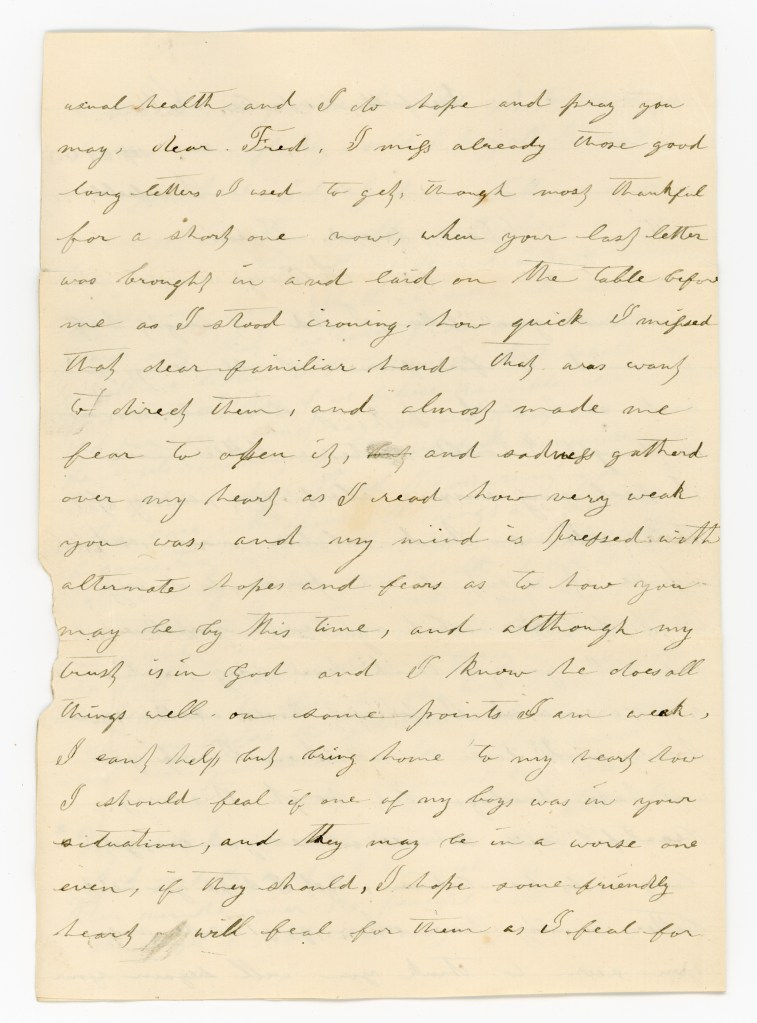 usual health and I do hope and pray you
may, dear Fred, I miss already those good
long letters I used to get, though most thankful
for a short one now, when your last letter
was brought in and laid on the table before
me as I stood ironing. how quick I missed
that dear familiar hand that was want
to direct them, and almost made me
fear to open it, and sadness gatherd
over my heart as I read how very weak
you was, and my mind is pressed with
alternate hopes and fears as to how you
may be by this time, and although my
trust is in God and I know he does all
things well. on some points I am weak,
I cant help but bring home to my heart how
I should feal if one of my boys was in your
situation, and they may be in a worse one
even, if they should, I hope some friendly
heart will feal for them as I feal for